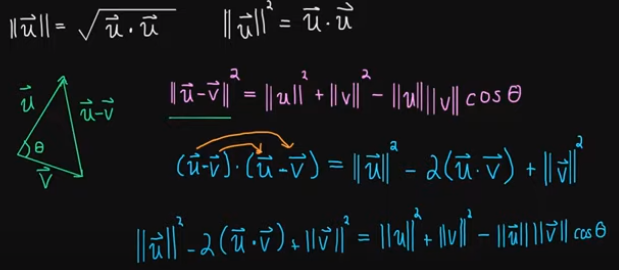 ||u⃗|| = √(u⃗ · u⃗)   ||u⃗||² = u⃗ · u⃗
u⃗
u⃗-v⃗
θ
v⃗
||u⃗-v⃗||² = ||u||² + ||v||² - ||u|| ||v|| cos θ
(u⃗-v⃗) · (u⃗-v⃗) = ||u⃗||² - 2(u⃗ · v⃗) + ||v⃗||²
||u⃗||² - 2(u⃗ · v⃗) + ||v⃗||² = ||u||² + ||v||² - ||u⃗|| ||v⃗|| cos θ